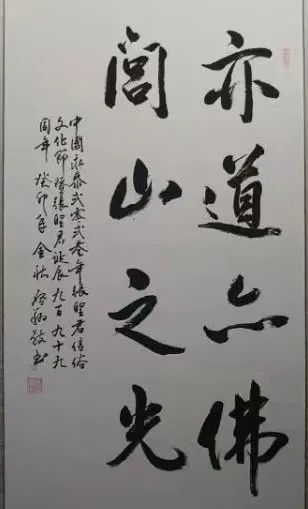 亦道亦佛
闾山之光
中國永泰弍零弍叁年張聖君信俗
文化節暨張聖君誕辰九百九十九
周年 癸卯年金秋 翔敬书